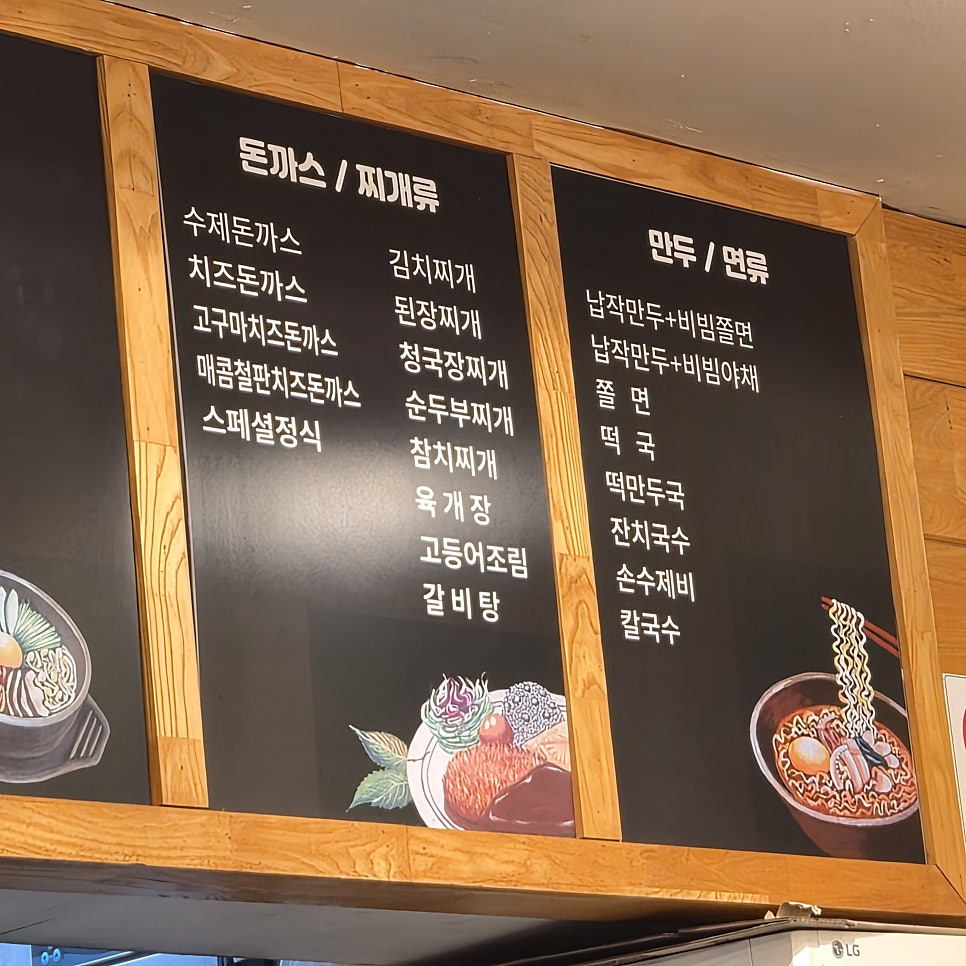 돈까스 / 찌개류
수제돈까스
치즈돈까스
고구마치즈돈까스
매콤철판치즈돈까스
스페셜정식
김치찌개
된장찌개
청국장찌개
순두부찌개
참치찌개
육개장
고등어조림
갈비탕
만두 / 면류
납작만두+비빔쫄면
납작만두+비빔야채
쫄 면
떡 국
떡만두국
잔치국수
손수제비
칼국수
LG